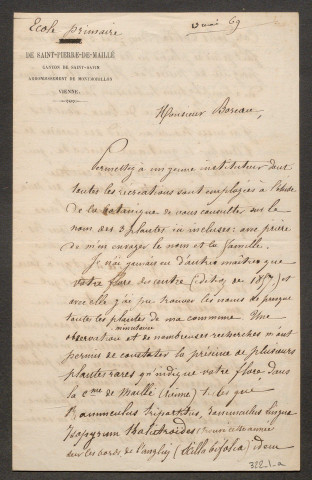 Ecole primaire
mai 69
DE SAINT-PIERRE-DE-MAILLÉ
CANTON DE SAINT-SAVIN
ARRONDISSEMENT DE MONTMORILLON
VIENNE.
Monsieur Boreau,
Permettez à un jeune instituteur dont
toutes les recréations sont employées à l'étude
de la botanique de vous consulter sur le
nom des 3 plantes ci incluses: avec prière
de m'en envoyer le nom et la famille.
Je n'ai jamais eu d'autre maître que
votre flore du centre (édition de 1857) et
avec elle j'ai pu trouver les noms de presque
toutes les plantes de ma commune. Une
minutaire
observation et de nombreuses recherches m'ont
permis de constater la présence de plusieurs
plantes rares qu'indique votre flore dans
la c.ne de Maillé (Vienne) tels que
Ranunculus tripartitus, Ranunculus lingua
Isopyrum thalictroides (trouvé cette année
sur les bords de l'anglin) (Scilla bifolia) idem
322_1_a